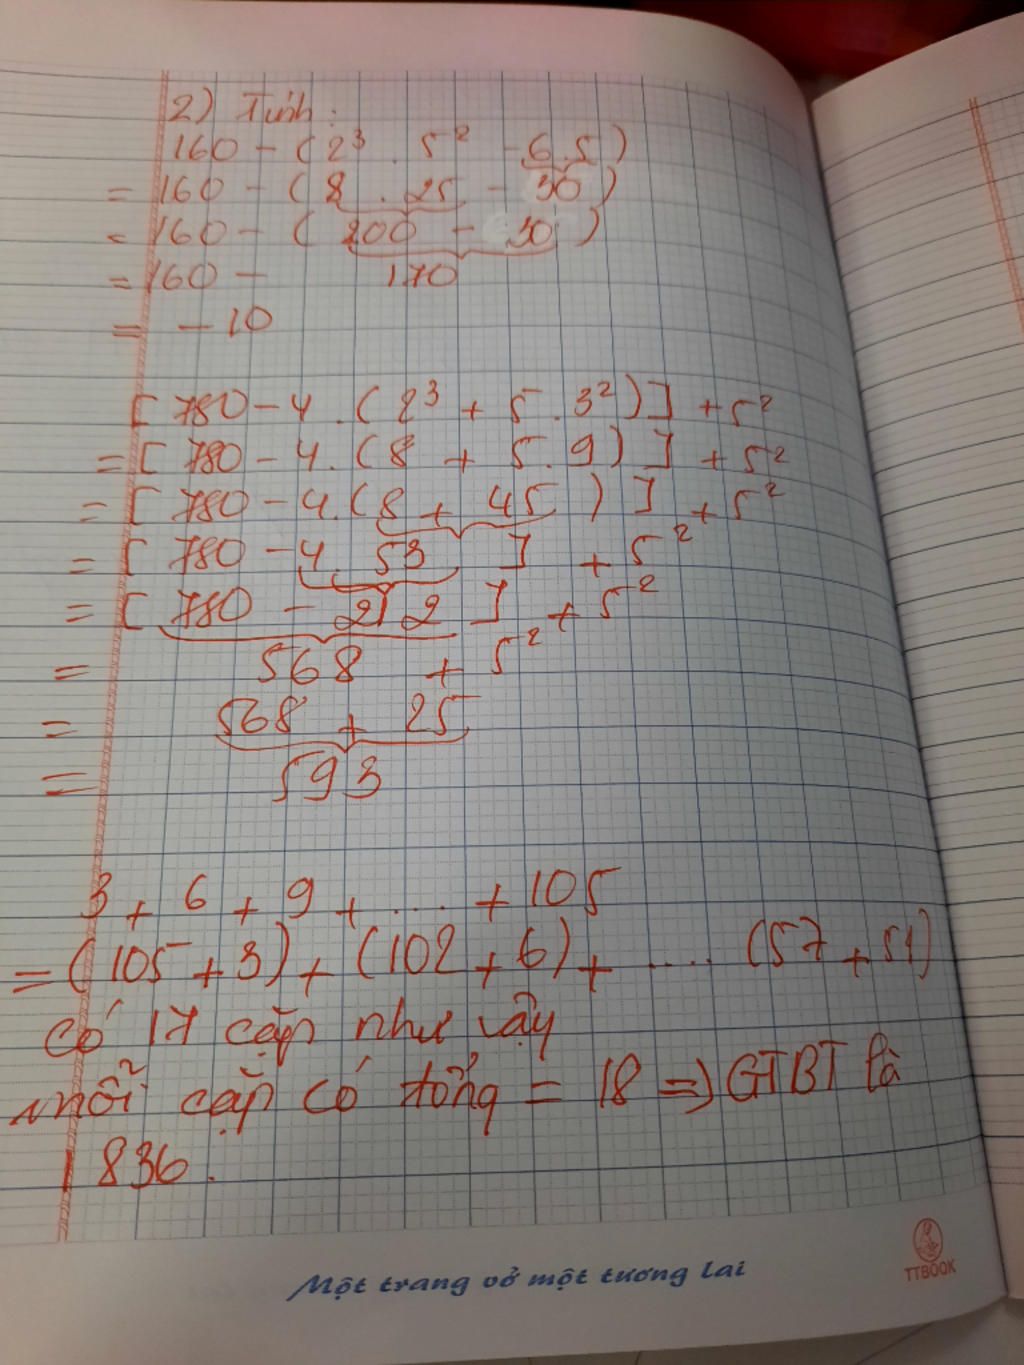 2) Tính:
160 - (2³ . 5² - 6.5)
= 160 - (8 . 25 - 30)
= 160 - (200 - 30)
= 160 - 170
= -10
[780 - 4 . (2³ + 5 . 3²)] + 5²
= [780 - 4.(8 + 5.9)] + 5²
= [780 - 4.(8 + 45)] + 5²
= [780 - 4. 53] + 5²
= [780 - 212] + 5²
= 568 + 5²
= 568 + 25
= 593
3 + 6 + 9 + .... + 105
= (105 + 3) + (102 + 6) + .... (57 + 51)
có 17 cặp như vậy
mỗi cặp có tổng = 18 => GTBT là
1 836.
Một trang vở một tương lai
TTBOOK